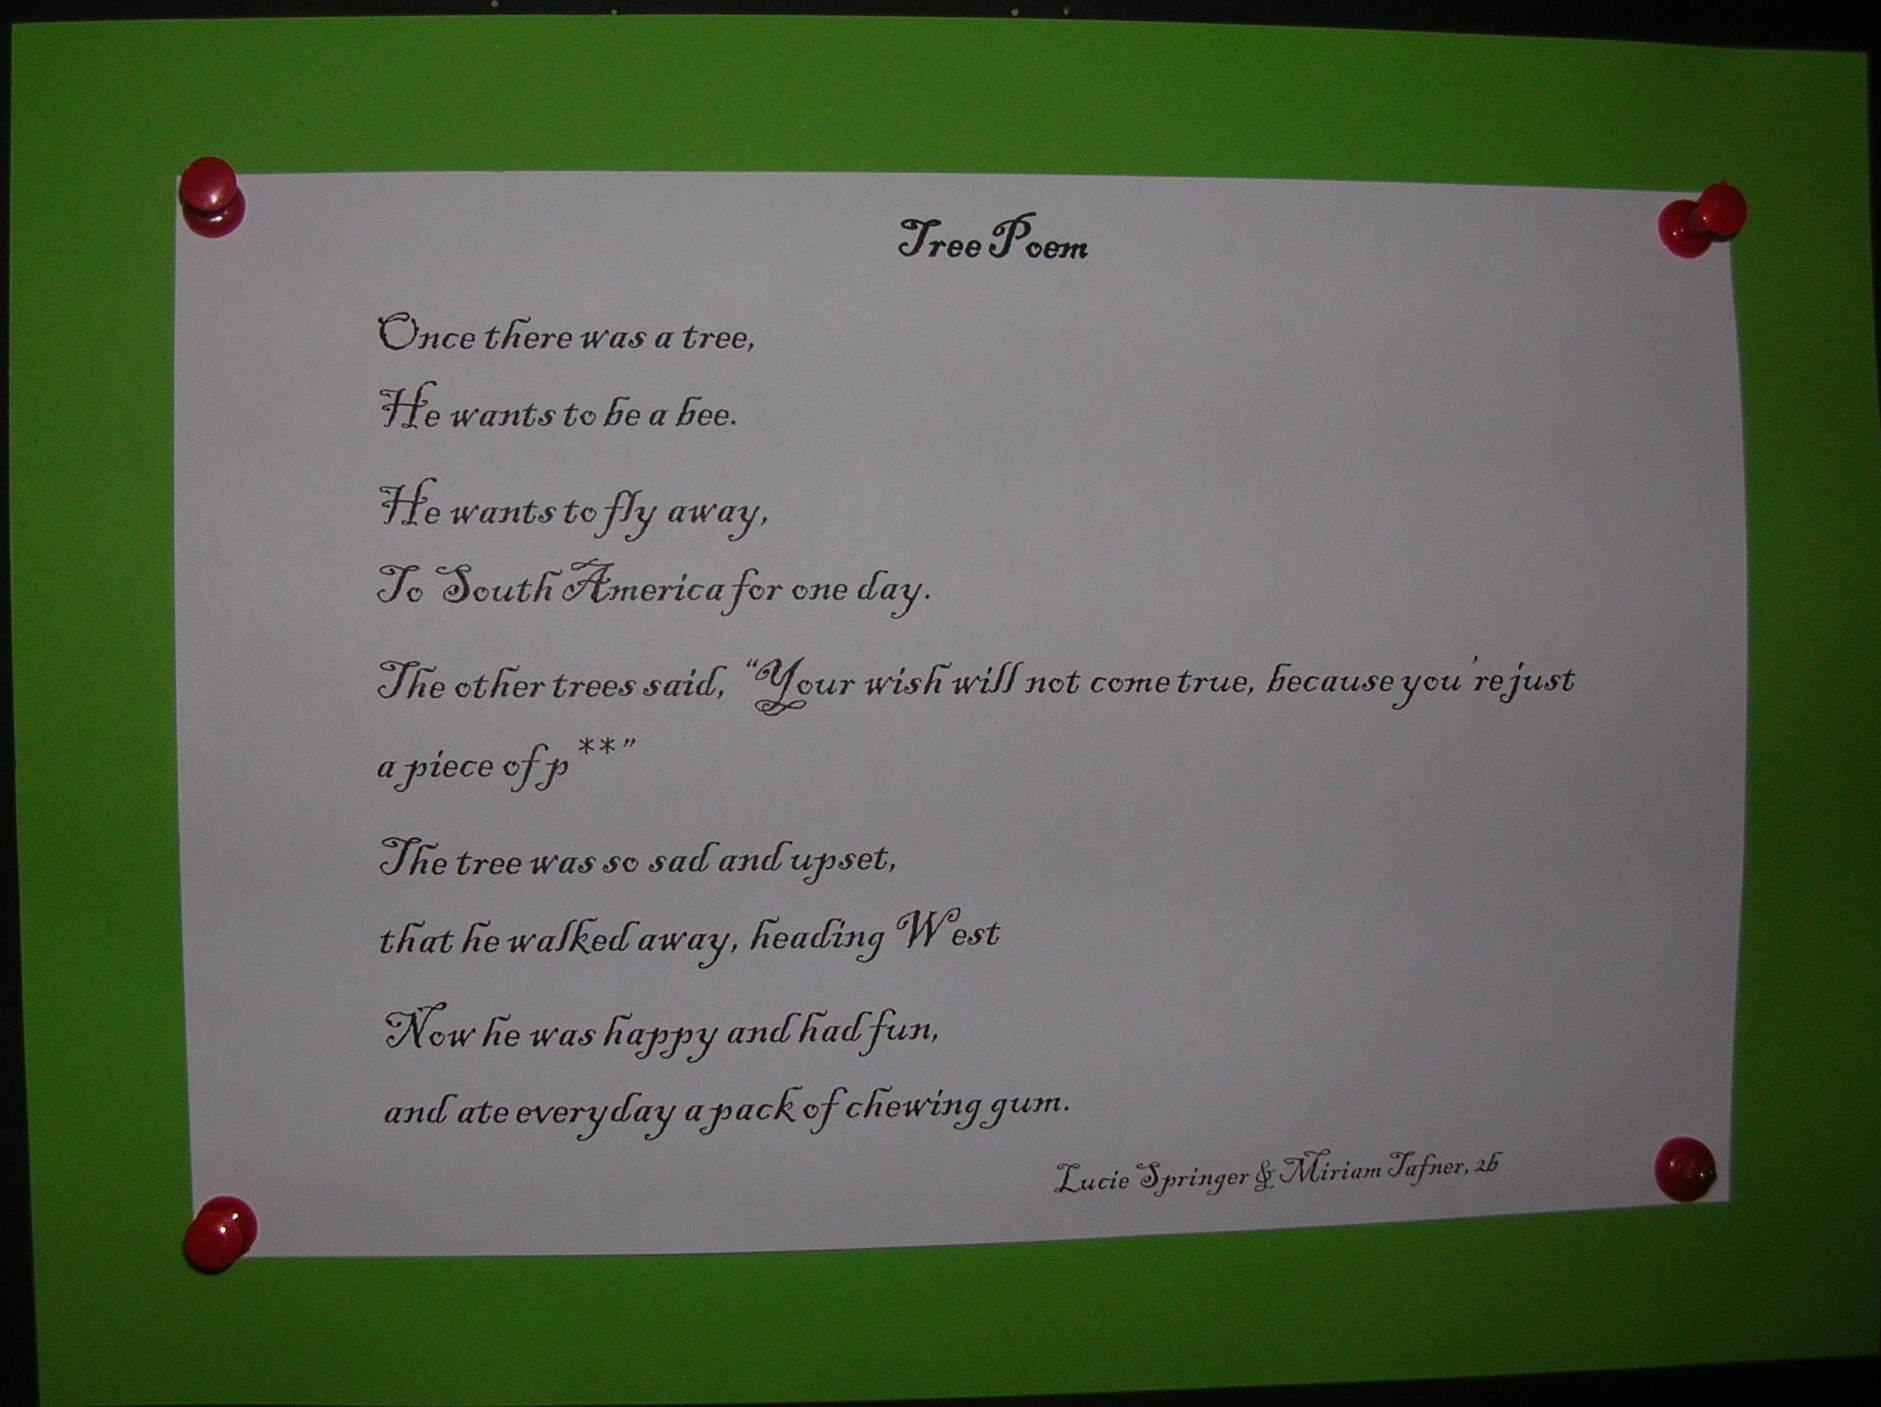 Tree Poem
Once there was a tree,
He wants to be a bee.
He wants to fly away,
To South America for one day.
The other trees said, “Your wish will not come true, because you're just
a piece of p**”
The tree was so sad and upset,
that he walked away, heading West
Now he was happy and had fun,
and ate everyday a pack of chewing gum.
Lucie Springer & Miriam Tafner, 2b